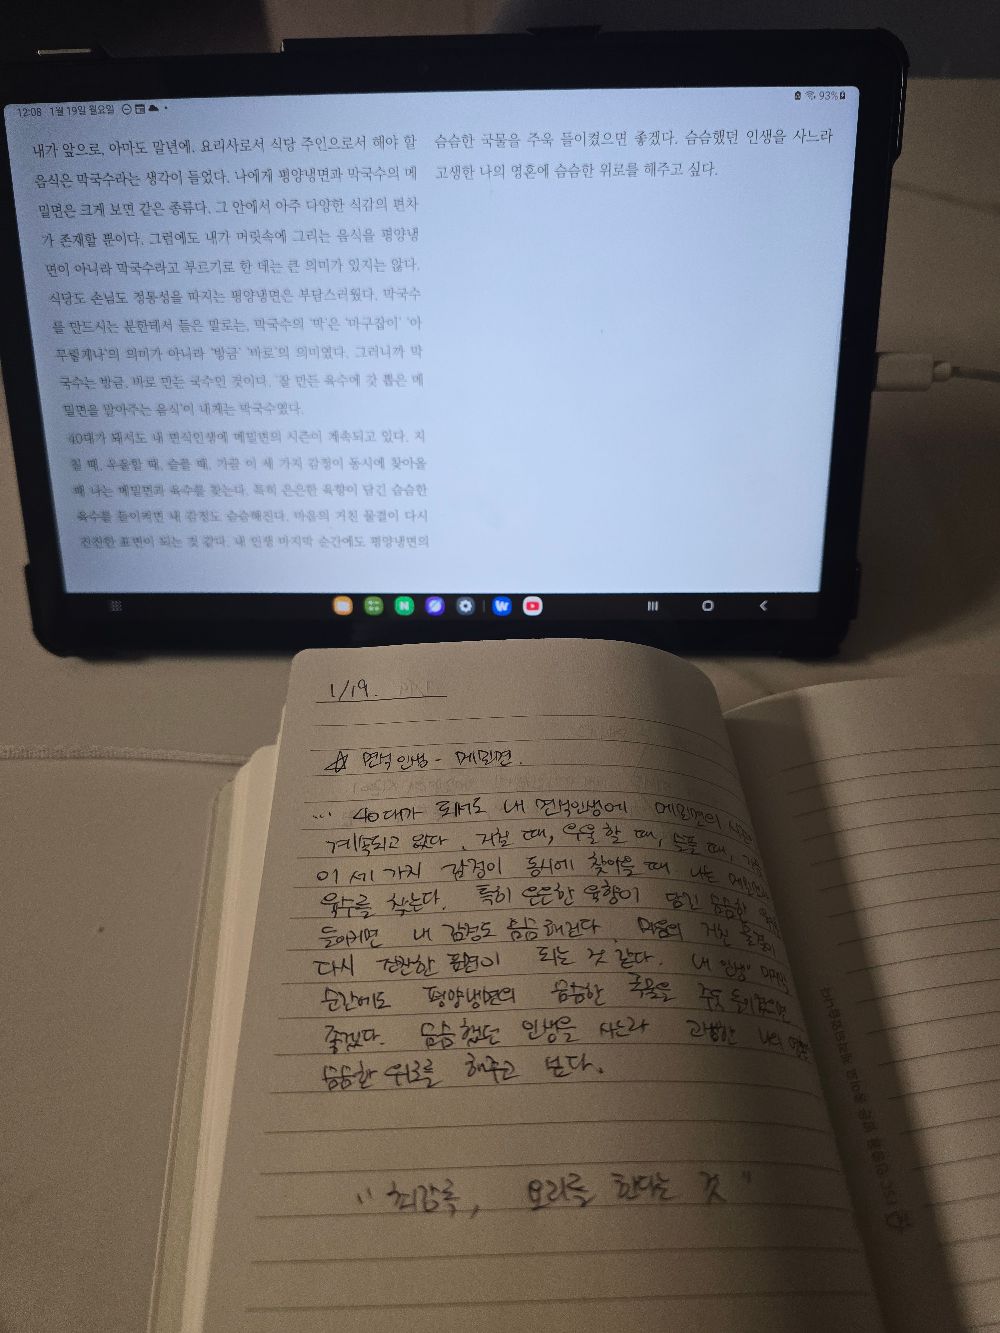 12:08 1월 19일 월요일
93%
내가 앞으로, 아마도 말년에, 요리사로서 식당 주인으로서 해야 할
음식은 막국수라는 생각이 들었다. 나에게 평양냉면과 막국수의 메
밀면은 크게 보면 같은 종류다. 그 안에서 아주 다양한 식감의 편차
가 존재할 뿐이다. 그럼에도 내가 머릿속에 그리는 음식을 평양냉
면이 아니라 막국수라고 부르기로 한 데는 큰 의미가 있지는 않다.
식당도 손님도 정통성을 따지는 평양냉면은 부담스러웠다. 막국수
를 만드시는 분한테서 들은 말로는, 막국수의 '막'은 '마구잡이' '아
무렇게나'의 의미가 아니라 '방금' '바로'의 의미였다. 그러니까 막
국수는 방금, 바로 만든 국수인 것이다. '잘 만든 육수에 갓 뽑은 메
밀면을 말아주는 음식'이 내게는 막국수였다.
40대가 돼서도 내 면식인생에 메밀면의 시즌이 계속되고 있다. 지
칠 때, 우울할 때, 슬플 때, 가끔 이 세 가지 감정이 동시에 찾아올
때 나는 메밀면과 육수를 찾는다. 특히 은은한 육향이 담긴 슴슴한
육수를 들이켜면 내 감정도 슴슴해진다. 마음의 거친 물결이 다시
잔잔한 표면이 되는 것 같다. 내 인생 마지막 순간에도 평양냉면의
슴슴한 국물을 주욱 들이켰으면 좋겠다. 슴슴했던 인생을 사느라
고생한 나의 영혼에 슴슴한 위로를 해주고 싶다.
1/19.
☆ 면식인생 - 메밀면.
... 40대가 돼서도 내 면식인생에 메밀면의 시즌
계속되고 있다. 지칠 때, 우울할 때, 슬플 때, 가끔
이 세 가지 감정이 동시에 찾아올 때 나는 메밀면과
육수를 찾는다. 특히 은은한 육향이 담긴 슴슴한
들이켜면 내 감정도 슴슴해진다 마음의 거친 물결이
다시 잔잔한 표면이 되는 것 같다. 내 인생 마지막
순간에도 평양냉면의 슴슴한 국물을 주욱 들이켰으면
좋겠다. 슴슴했던 인생을 사느라 고생한 나의
슴슴한 위로를 해주고 싶다.
"최강록, 요리를 한다는 것"